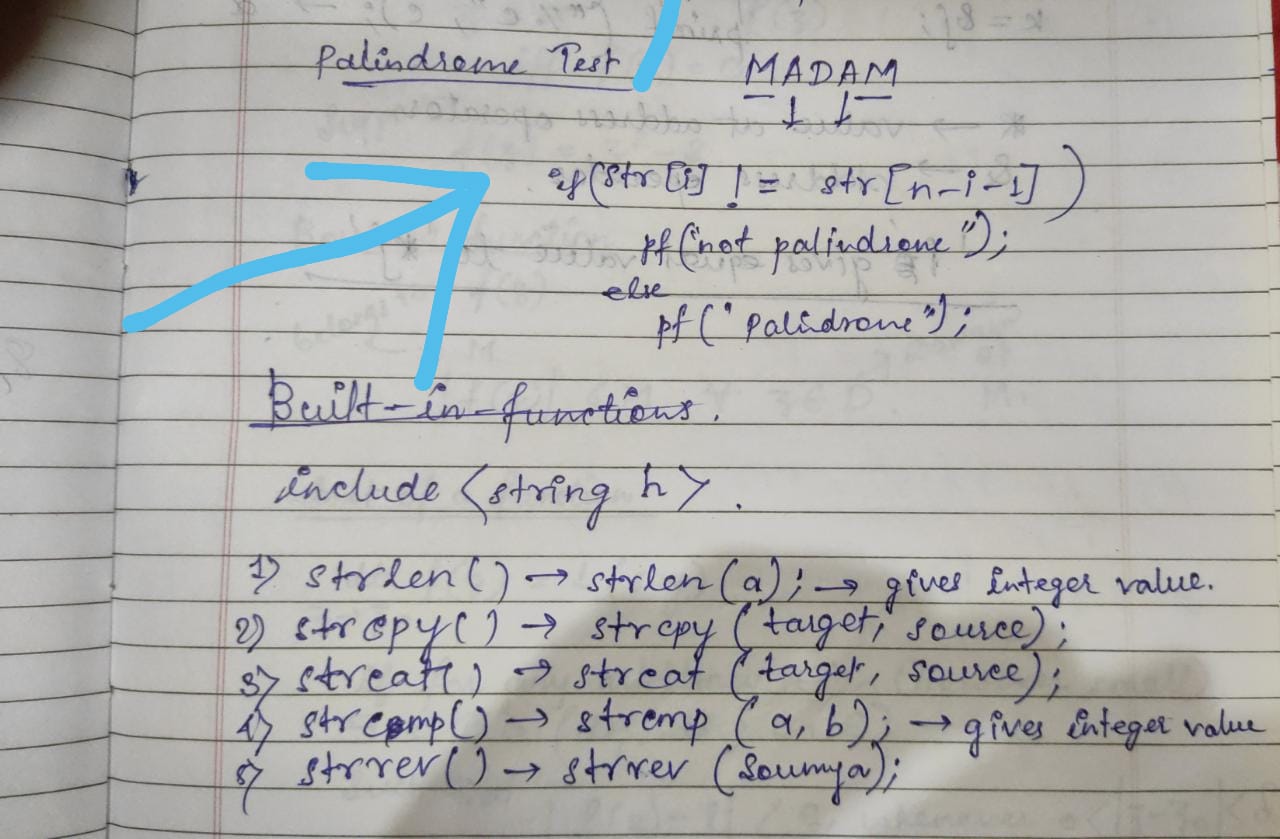 Palindrome Test MADAM
if (str[i] != str[n-i-1])
pf("not palindrone");
else
pf("Palindrone");
Built-in-functions.
include <string h>.
1) strlen() → strlen(a); → gives integer value.
2) strcpy() → strcpy (target, source);
3) strcat() → strcat (target, source);
4) strcmp() → strcmp (a, b); → gives integer value
5) strrev() → strrev (Soumya);